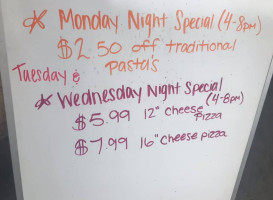 * Monday Night Special (4-8pm)
$2.50 off traditional
Pasta's
Tuesday &
* Wednesday Night Special
(4-8pm)
$5.99 12" cheese pizza
$7.99 16" cheese pizza